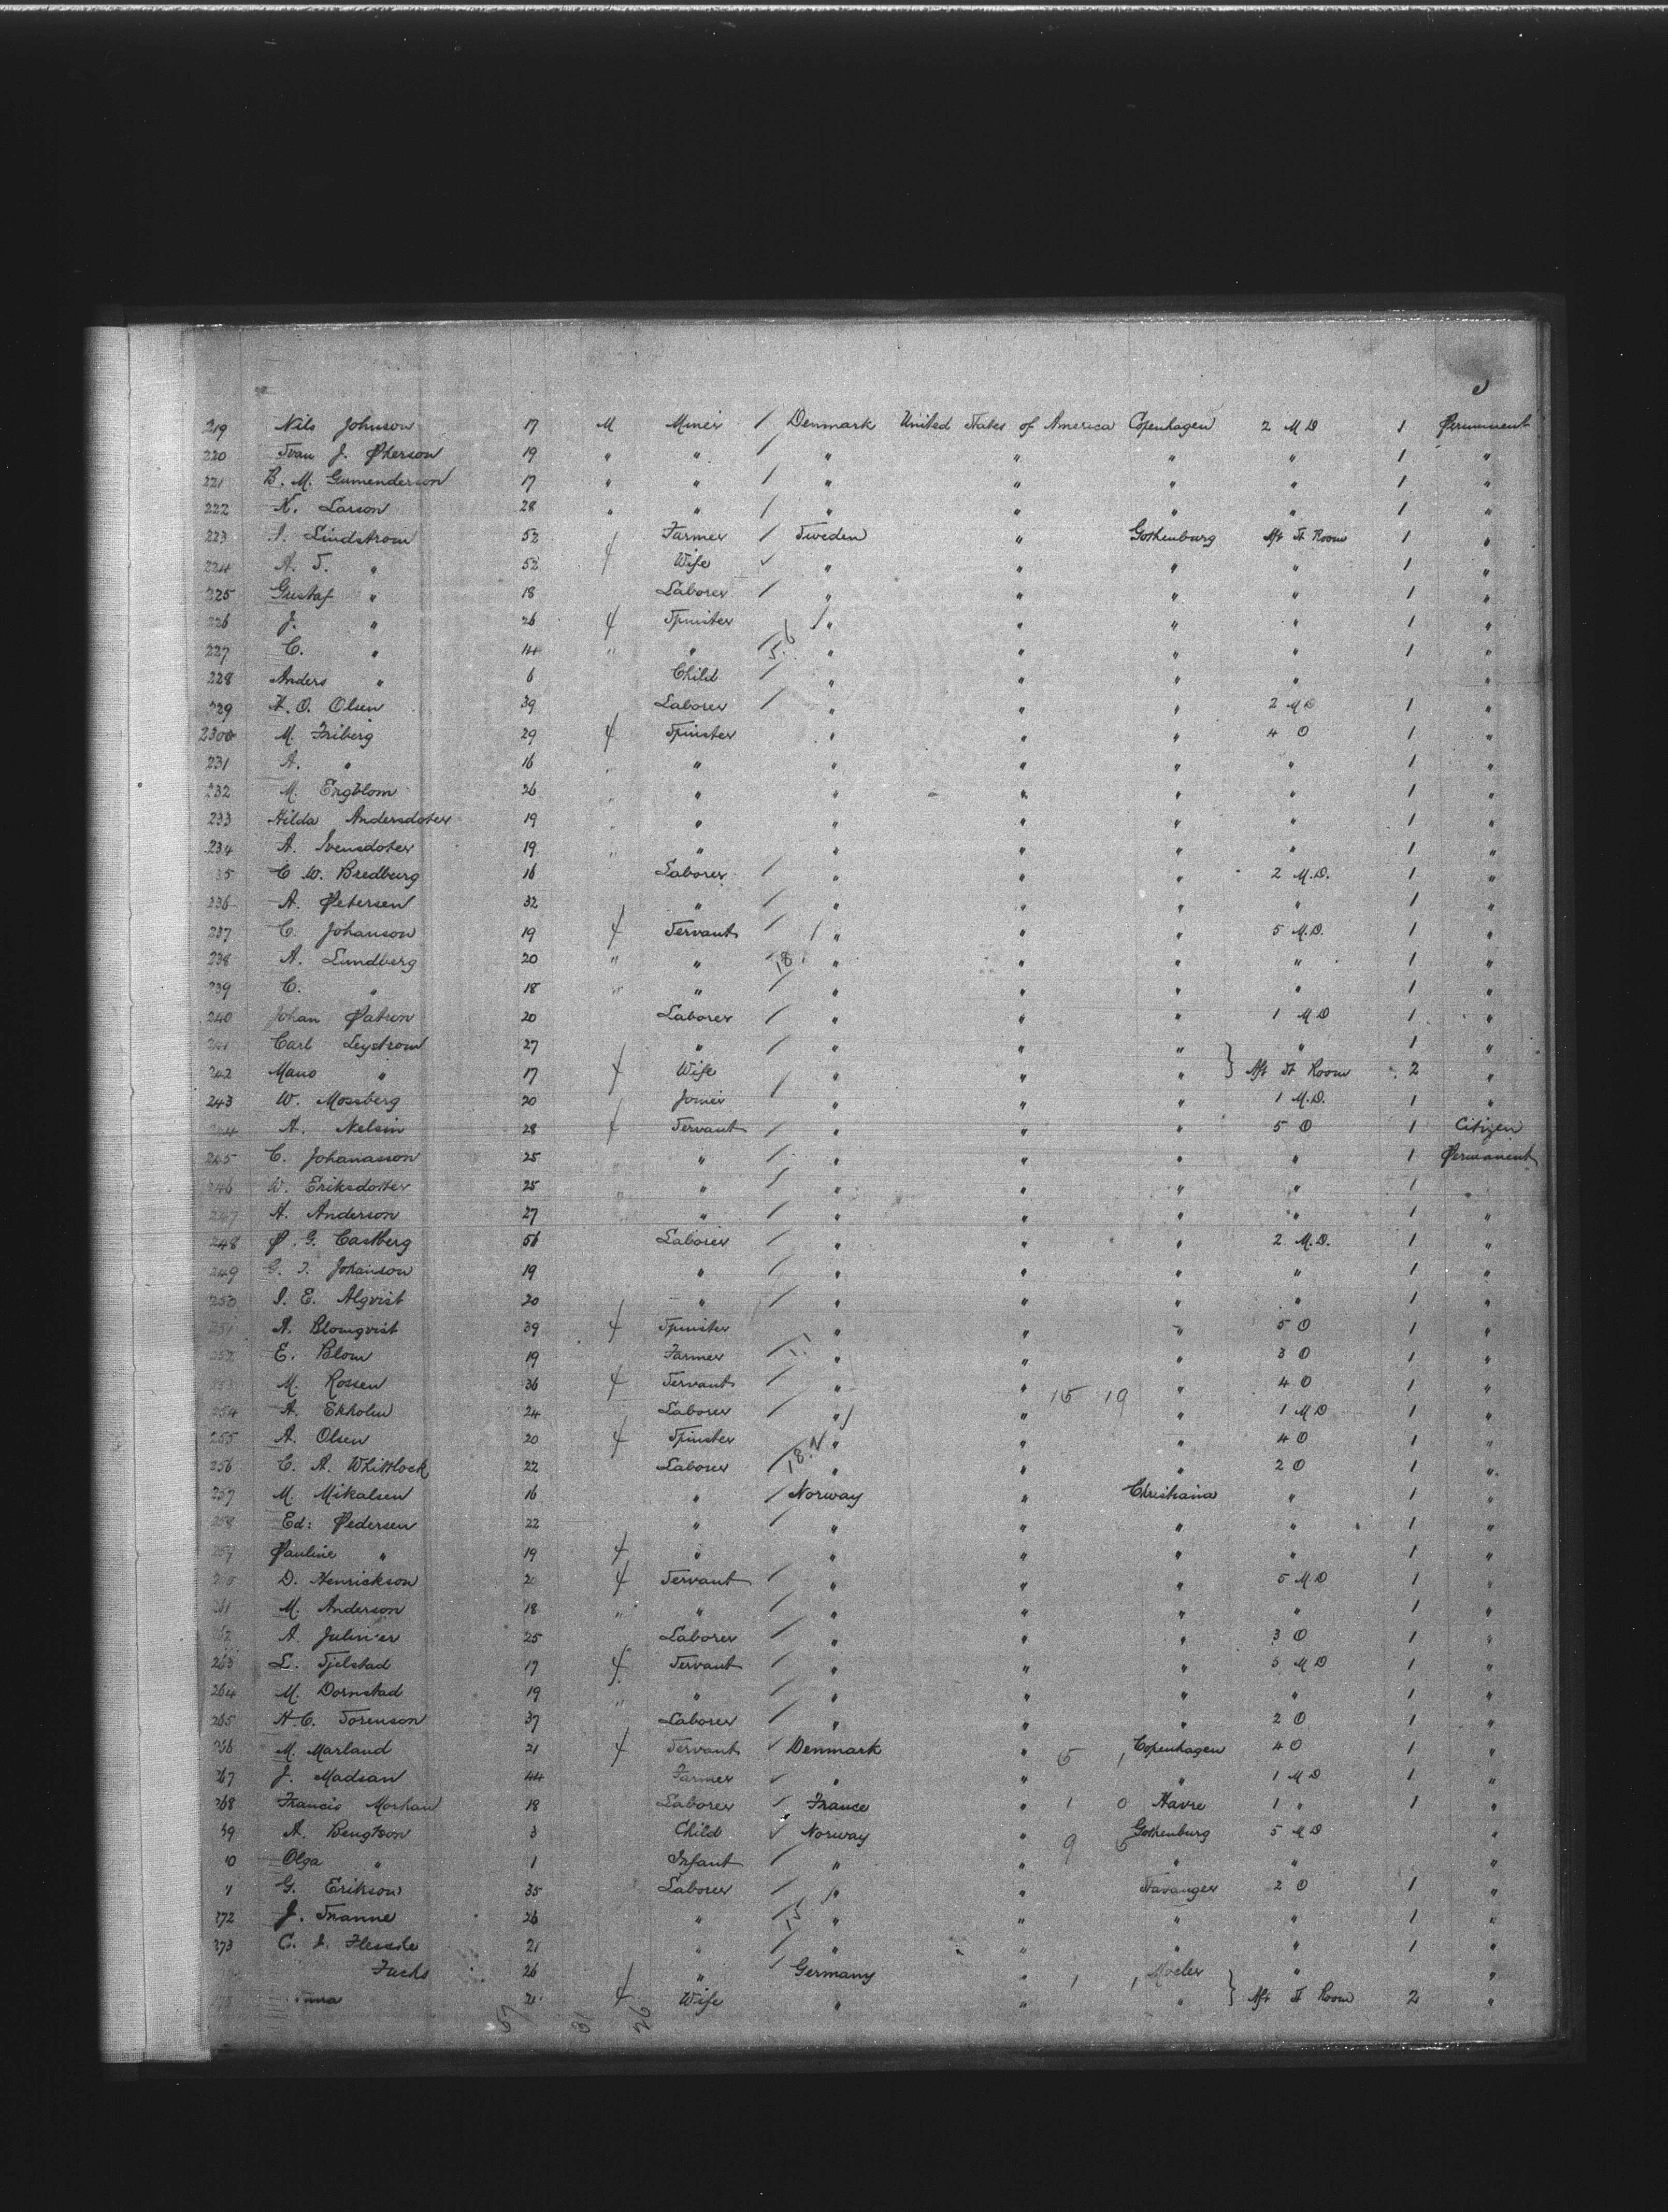 219 Nils Johnson 17 M Miner / Denmark United States of America Copenhagen 2 M D 1 Permanent
220 Svan J. Pherson 19 " " / " " " " 1 "
221 B. M. Gumenderson 17 " " / " " " " 1 "
222 N. Larson 28 " " / " " " " 1 "
223 Lindstrom 52 Farmer / Sweden " Gothenburg Aft St Room 1 "
224 A. S. " 52 f Wife " " " " 1 "
225 Gustaf " 18 Laborer / " " " " 1 "
226 J. " 26 f Spinster / " " " " 1 "
227 C. " 14 " " / " " " " 1 "
228 Anders " 6 Child / " " " " "
229 H. O. Olsen 39 Laborer / " " " 2 M D 1 "
230 M. Friberg 29 f Spinster " " " 4 O 1 "
231 A. " 16 " " " " " " 1 "
232 M. Engblom 26 " " " " " " 1 "
233 Hilda Andersdoter 19 " " " " " 1 "
234 A. Svensdoter 19 " " " " " " 1 "
35 C W. Bredburg 16 Laborer / " " " 2 M.D. 1 "
236 A. Petersen 32 " / " " " " 1 "
237 C. Johanson 19 f Servant / " " " 5 M.D. 1 "
238 A. Lundberg 20 " " 18 " " " " 1 "
239 C. " 18 " " / " " " " 1 "
240 Johan Patron 20 Laborer / " " " 1 M D 1 "
241 Carl Leystrom 27 " / " " " " 1 "
242 " 17 f Wife " " " Aft St Room 2 "
243 W. Mossberg 20 Joiner / " " " 1 M.D. 1 "
A. Nelsin 28 f Servant / " " " 5 O 1 Citizen
245 C. Johanasson 25 " / " " " " 1 Permanent
246 W. Eriksdotter 25 " " / " " " " 1
247 H. Anderson 27 " / " " " " 1 "
248 P. G. Castberg 56 Laborer / " " " 2 M.D. 1 "
249 Johanson 19 " / " " " " 1 "
250 E. Alqvist 20 " / " " " " 1 "
251 A. Blomqvist 39 f Spinster " " " 5 O 1 "
252 E. Blom 19 Farmer / " " " 3 O 1 "
M. Rossen 36 f Servant / " " 15 19 " 4 O 1 "
254 A. Ekholm 24 Laborer / " " " 1 M D 1 "
255 A. Olsen 20 f Spinster " " " 4 O 1 "
256 C. A. Whittlock 22 Laborer 18 " " " 2 O 1 "
257 M. Mikalsen 16 " / Norway " Christiania " 1 "
258 Ed: Pedersen 22 " / " " " " 1 "
259 Pauline " 19 f " " " " " 1 "
D. Henrickson 20 f Servant / " " " 5 M D 1 "
261 M. Anderson 18 " " / " " " " 1 "
262 A. 25 Laborer / " " " 3 O 1 "
263 L. Tjelstad 17 f Servant / " " " 5 M D 1 "
264 M. Dornstad 19 " " / " " " " 1 "
265 H. C. Sorenson 37 Laborer / " " " 2 O 1 "
266 M. Marland 21 f Servant Denmark " 5 1 Copenhagen 4 O 1 "
267 J. Madsan 44 Farmer " " " 1 M D 1 "
268 Francis Morhan 18 Laborer / France " 1 0 Havre 1 " 1 "
69 A. Bengtson 3 Child Norway " 9 Gothenburg 5 M D "
0 Olga " 1 Infant / " " " " "
1 G. Erikson 35 Laborer / " " Stavanger 2 O 1 "
272 J. 26 " " " " " 1 "
273 C. J. 21 " / " " " " 1 "
Fuchs 26 " / Germany " 1 1 " "
21 f Wife " " " Aft St Room 2 "